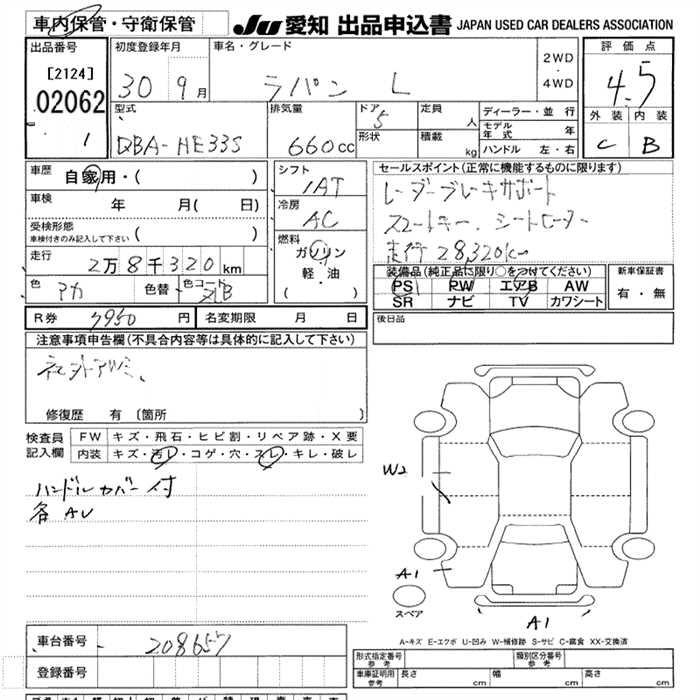 車内保管・守衛保管
JU 愛知 出品申込書 JAPAN USED CAR DEALERS ASSOCIATION
出品番号
[2124]
02062
1
初度登録年月
30 9月
車名・グレード
ラパン L
2WD
4WD
評価点
4.5
外装 内装
C B
型式
DBA-HE33S
排気量
660cc
ドア 5
形状
定員 人
積載 kg
ディーラー・並行
モデル年式 年
ハンドル 左・右
車歴
自家用・( )
車検 年 月( 日)
受検形態
車検付きのみ記入して下さい ( )
走行
2万8千320km
色 アカ 色替 色コード
シフト
IAT
冷房
AC
燃料
ガソリン
軽・油
( )
セールスポイント(正常に機能するものに限ります)
レーダーブレーキサポート
スマートキー、シートヒーター
走行28,320km
装備品(純正品に限り○をつけてください)
PS PW エアB AW
SR ナビ TV カワシート
新車保証書
有・無
R券 7950円
名変期限 月 日
後日品
注意事項申告欄(不具合内容等は具体的に記入して下さい)
修復歴 有〔箇所 〕
検査員記入欄
FW キズ・飛石・ヒビ割・リペア跡・X要
内装 キズ・汚レ・コゲ・穴・スレ・キレ・破レ
ハンドルカバー付
各AU
W2
A1
スペア
A1
A-キズ E-エクボ U-凹み W-補修跡 S-サビ C-腐食 XX-交換済
車台番号
登録番号
形式指定番号 参考
類別区分番号 参考
車庫証明用 参考 長さ cm 幅 cm 高さ cm